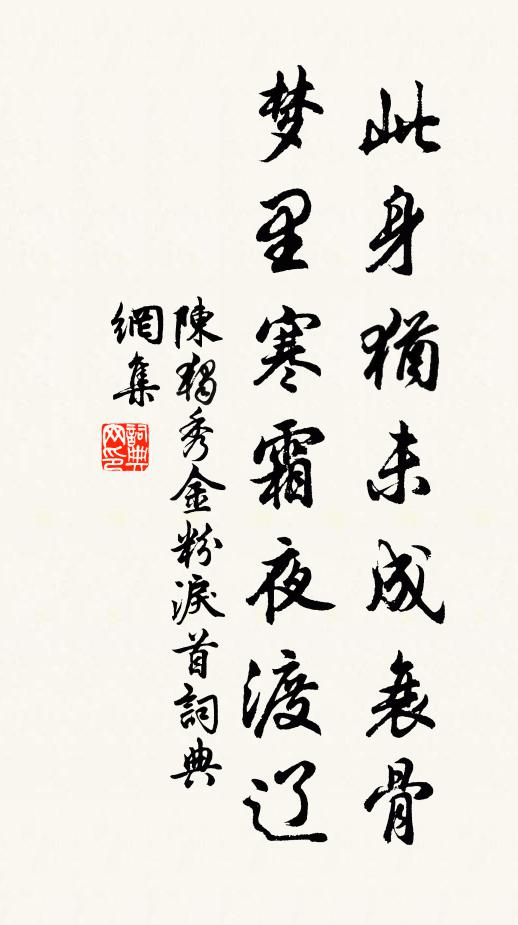 此身犹未成衰骨
梦里寒霜夜渡辽
陳獨秀金粉淚首詞典
網集
詞典
网印